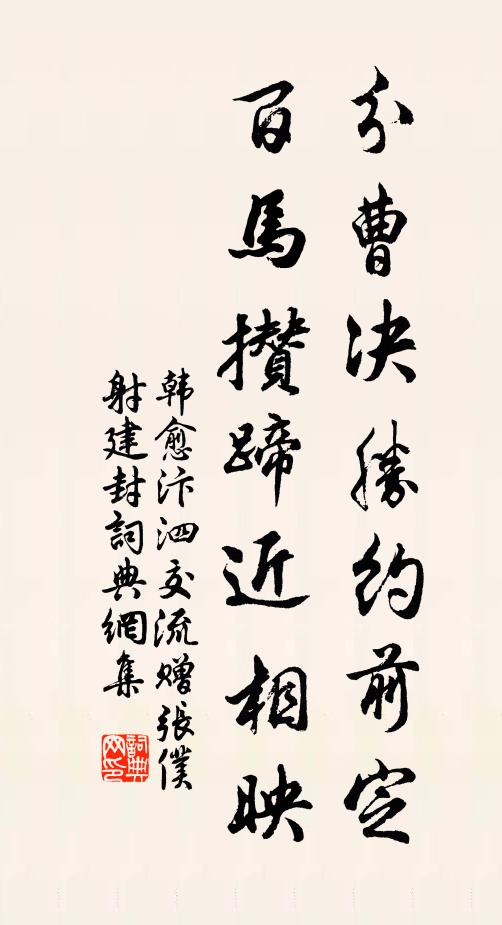 分曹決勝約前定
百馬攢蹄近相映
韩愈汴泗交流赠張僕
射建封詞典網集
詞典
网印